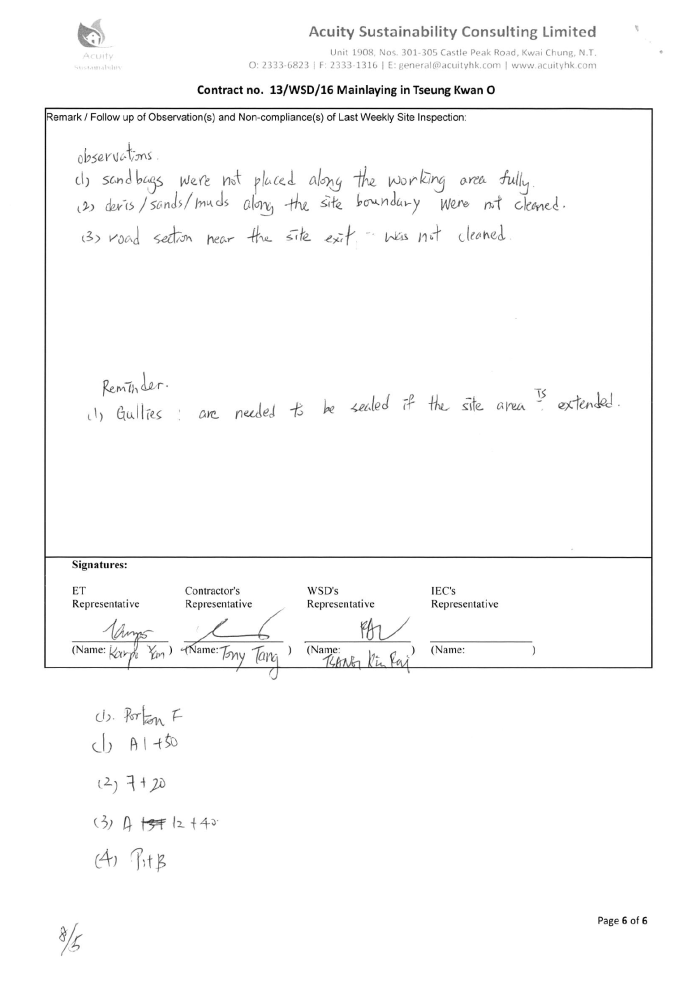 Acuity Sustainability Consulting Limited
Acuity
Sustainabilities
Unit 1908, Nos. 301-305 Castle Peak Road, Kwai Chung, N.T.
O: 2333-6823 | F: 2333-1316 | E: general@acuityhk.com | www.acuityhk.com
Contract no. 13/WSD/16 Mainlaying in Tseung Kwan O
Remark / Follow up of Observation(s) and Non-compliance(s) of Last Weekly Site Inspection:
observations.
(1) sandbags were not placed along the working area fully.
(2) deris/sands/muds along the site boundary were not cleaned.
(3) road section near the site exit was not cleaned.
Reminder.
(1) Gullies : are needed to be sealed if the site area is extended.
Signatures:
ET Contractor's WSD's IEC's
Representative Representative Representative Representative
(Name: Yan) (Name: Tony Tang) (Name: TSANG) (Name: )
(1). Portion F
(1) A 1+50
(2) 7+20
(3) A 12+40
(4) Pit B
Page 6 of 6
8/5